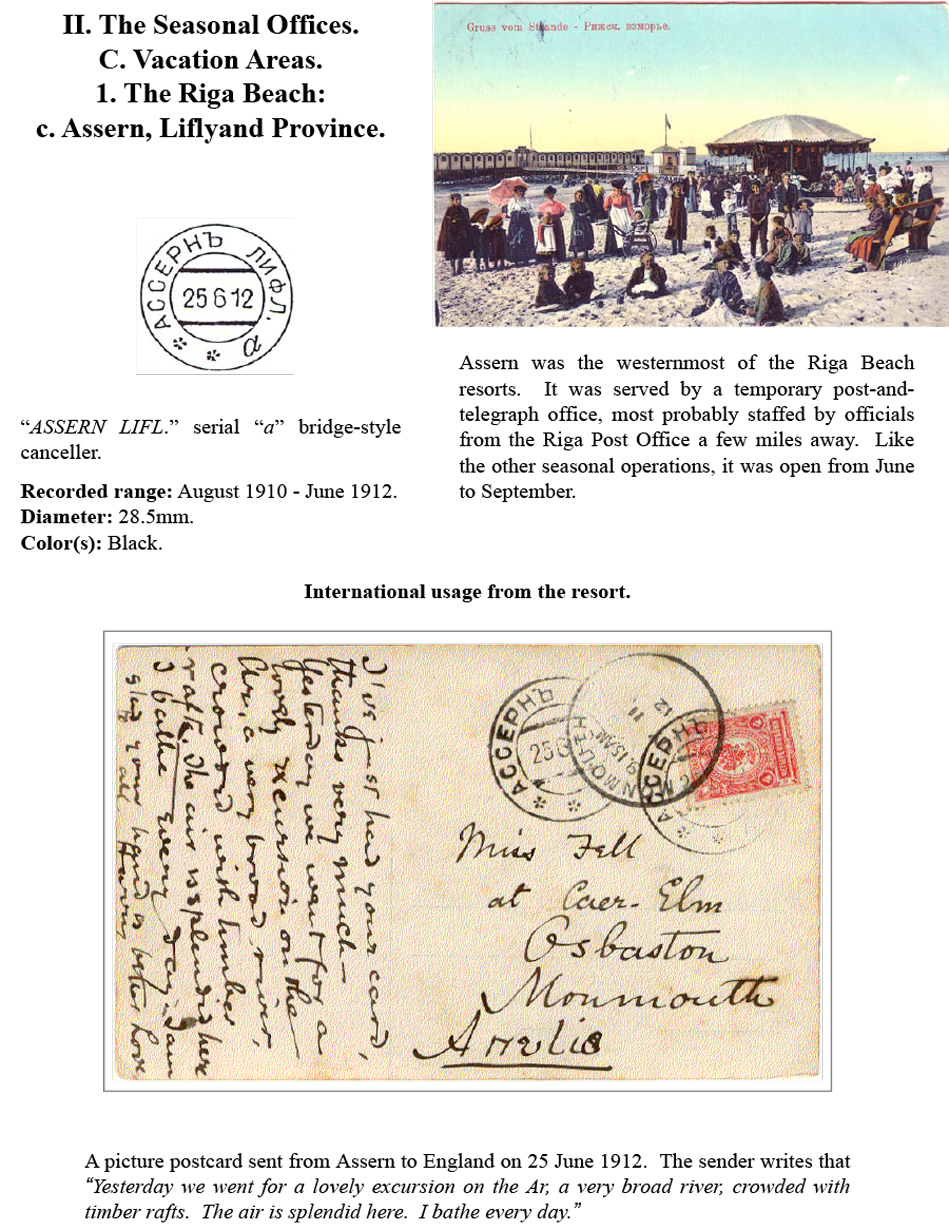 II. The Seasonal Offices.
C. Vacation Areas.
1. The Riga Beach:
c. Assern, Liflyand Province.
Gruss vom Strande - Рижск. взморье.
АССЕРНЪ ЛИФЛ.
25 6 12
а
Assern was the westernmost of the Riga Beach
resorts. It was served by a temporary post-and-
telegraph office, most probably staffed by officials
from the Riga Post Office a few miles away. Like
the other seasonal operations, it was open from June
to September.
“ASSERN LIFL.” serial “a” bridge-style
canceller.
Recorded range: August 1910 - June 1912.
Diameter: 28.5mm.
Color(s): Black.
International usage from the resort.
I've just had your card,
thanks very much—
Yesterday we went for a
lovely excursion on the
Ar, a very broad river,
crowded with timber
rafts. The air is splendid here
I bathe every day. I am
glad your hand is better love
to all
АССЕРНЪ
25 6
MONMOUTH
9 15AM
11
12
АССЕРНЪ
Miss Fell
at Caer-Elm
Osbaston
Monmouth
Англiя
A picture postcard sent from Assern to England on 25 June 1912. The sender writes that
“Yesterday we went for a lovely excursion on the Ar, a very broad river, crowded with
timber rafts. The air is splendid here. I bathe every day.”